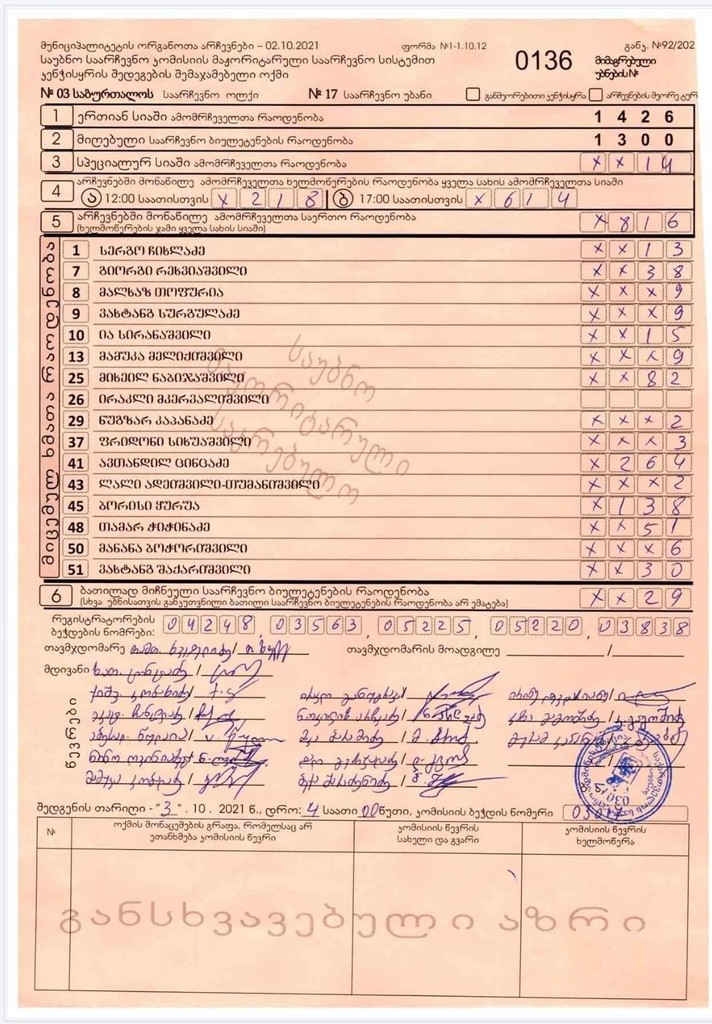 მუნიციპალიტეტის ორგანოთა არჩევნები – 02.10.2021 ფორმა №1-1.10.12 განკ. №92/202
საუბნო საარჩევნო კომისიის მაჟორიტარული საარჩევნო სისტემით 0136 მიმაგრებული
კენჭისყრის შედეგების შემაჯამებელი ოქმი უბნების№
№ 03 საბურთალოს საარჩევნო ოლქი № 17 საარჩევნო უბანი განმეორებითი კენჭისყრა არჩევნების მეორე ტურ
1 ერთიან სიაში ამომრჩეველთა რაოდენობა 1 4 2 6
2 მიღებული საარჩევნო ბიულეტენების რაოდენობა 1 3 0 0
3 სპეციალურ სიაში ამომრჩეველთა რაოდენობა x x 1 4
4 არჩევნებში მონაწილე ამომრჩეველთა ხელმოწერების რაოდენობა ყველა სახის ამომრჩეველთა სიაში
ა 12:00 საათისთვის x 2 1 8 ბ 17:00 საათისთვის x 6 1 4
5 არჩევნებში მონაწილე ამომრჩეველთა საერთო რაოდენობა x 8 1 6
(ხელმოწერების ჯამი ყველა სახის სიაში)
მიცემულ ხმათა რაოდენობა
1 სერგო ჩიხლაძე x x 1 3
7 გიორგი რეხვიაშვილი x x 3 8
8 მალხაზ თოფურია x x x 9
9 ვახტანგ სურგულაძე x x x 9
10 ია სირანაშვილი x x 1 5
13 მამუკა მელიქიშვილი x x x 9
25 მიხეილ ნაბიჯაშვილი x x 8 2
26 ირაკლი მკერვალიშვილი
29 ნუგზარ კაპანაძე x x x 2
37 ფრიდონი სიხუაშვილი x x x 3
41 ავთანდილ ცინცაძე x 2 6 4
43 ლალი ადეიშვილი-თუმანიშვილი x x x 2
45 ბორისი ყურუა x 1 3 8
48 თამარ ჭიჭინაძე x x 5 1
50 მანანა ბოჭორიშვილი x x x 6
51 ვახტანგ შაქარიშვილი x x 3 0
საუბნო
მაჟორიტარული
საკრებულო
6 ბათილად მიჩნეული საარჩევნო ბიულეტენების რაოდენობა x x 2 9
(სხვა უბნისათვის განკუთვნილი ბათილი საარჩევნო ბიულეტენების რაოდენობა არ ემატება)
რეგისტრატორების
ბეჭდების ნომრები: 04248 03563, 05225, 05220, 03838
თავმჯდომარე / თავმჯდომარის მოადგილე /
მდივანი
წევრები
შედგენის თარიღი - "3" . 10 . 2021 წ., დრო: 4 საათი 00 წუთი, კომისიის ბეჭდის ნომერი
№ ოქმის მონაცემების გრაფა, რომელსაც არ ეთანხმება კომისიის წევრი კომისიის წევრის სახელი და გვარი კომისიის წევრის ხელმოწერა
განსხვავებული აზრი